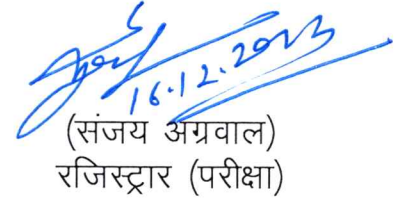 16.12.2023
(संजय अग्रवाल)
रजिस्ट्रार (परीक्षा)